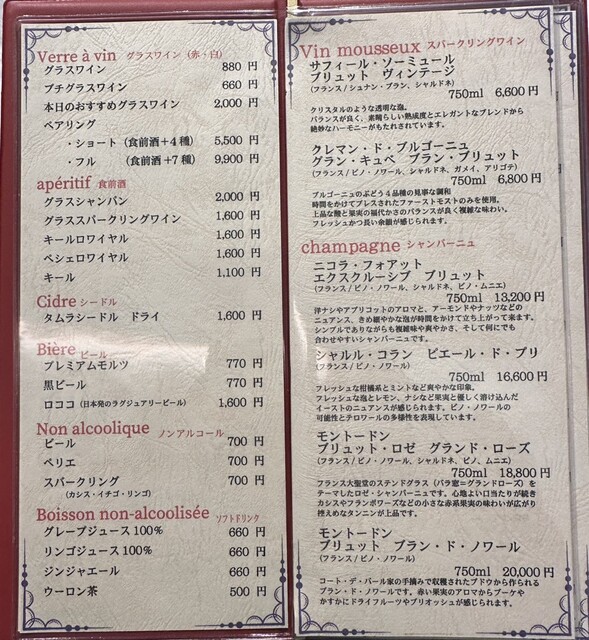 Verre à vin グラスワイン（赤・白）
グラスワイン 880 円
プチグラスワイン 660 円
本日のおすすめグラスワイン 2,000 円
ペアリング
・ショート（食前酒＋4 種） 5,500 円
・フル （食前酒＋7 種） 9,900 円
apéritif 食前酒
グラスシャンパン 2,000 円
グラススパークリングワイン 1,600 円
キールロワイヤル 1,600 円
ペシェロワイヤル 1,600 円
キール 1,100 円
Cidre シードル
タムラシードル ドライ 1,600 円
Bière ビール
プレミアムモルツ 770 円
黒ビール 770 円
ロココ（日本発のラグジュアリービール） 1,600 円
Non alcoolique ノンアルコール
ビール 700 円
ペリエ 700 円
スパークリング 700 円
（カシス・イチゴ・リンゴ）
Boisson non-alcoolisée ソフトドリンク
グレープジュース 100% 660 円
リンゴジュース 100% 660 円
ジンジャエール 660 円
ウーロン茶 500 円
Vin mousseux スパークリングワイン
サフィール・ソーミュール
ブリュット ヴィンテージ
(フランス / シュナン・ブラン、シャルドネ)
750ml 6,600円
クリスタルのような透明な泡。
バランスが良く、素晴らしい熟成度とエレガントなブレンドから
絶妙なハーモニーがもたれされています。
クレマン・ド・ブルゴーニュ
グラン・キュベ ブラン・ブリュット
(フランス / ピノ・ノワール、シャルドネ、ガメイ、アリゴテ)
750ml 6,800円
ブルゴーニュのぶどう 4 品種の見事な調和
時間をかけてプレスされたファーストモストのみを使用。
上品な酸と果実の福代かさのバランスが良く複雑な味わい。
フレッシュかつ長い余韻が感じられます。
champagne シャンパーニュ
ニコラ・フォアット
エクスクルーシブ ブリュット
(フランス / ピノ・ノワール、シャルドネ、ピノ・ムニエ)
750ml 13,200円
洋ナシやアプリコットのアロマと、アーモンドやナッツなどの
ニュアンス、きめ細やかな泡が時間をかけて立ち上がって来ます。
シンプルでありながらも複雑味や爽やかさ、そして何にでも
合わせやすいシャンパーニュです。
シャルル・コラン ピエール・ド・プリ
(フランス / ピノ・ノワール)
750ml 16,600円
フレッシュな柑橘系とミントなど爽やかな印象。
フレッシュな泡とレモン、ナシなど果実と優しく溶け込んだ
イーストのニュアンスが感じられます。ピノ・ノワールの
可能性とテロワールの多様性を表現しています。
モントードン
ブリュット・ロゼ グランド・ローズ
(フランス / ピノ・ノワール、シャルドネ、ピノ、ムニエ)
750ml 18,800円
フランス大聖堂のステンドグラス（バラ窓=グランドローズ）を
テーマしたロゼ・シャンパーニュです。心地よい口当たりが続き
カシスやフランボワーズなどの小さな赤系果実の味わいが広がり
控えめなタンニンが上品です。
モントードン
ブリュット ブラン・ド・ノワール
(フランス / ピノ・ノワール)
750ml 20,000円
コート・デ・バール家の手摘みで収穫されたブドウから作られる
ブラン・ド・ノワールです。赤い果実のアロマからブーケや
かすかにドライフルーツやブリオッシュが感じられます。